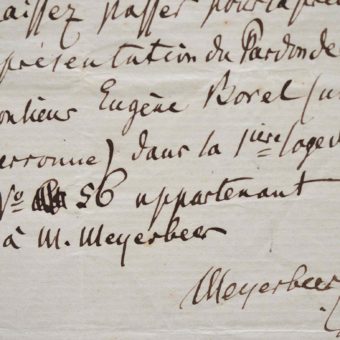 aissez passer pour la pre
présentation du Pardon de
onsieur Eugène Borel (un
ersonne) dans la 1ière loge
No 56 appartenant
à M. Meyerbeer
Meyerbeer